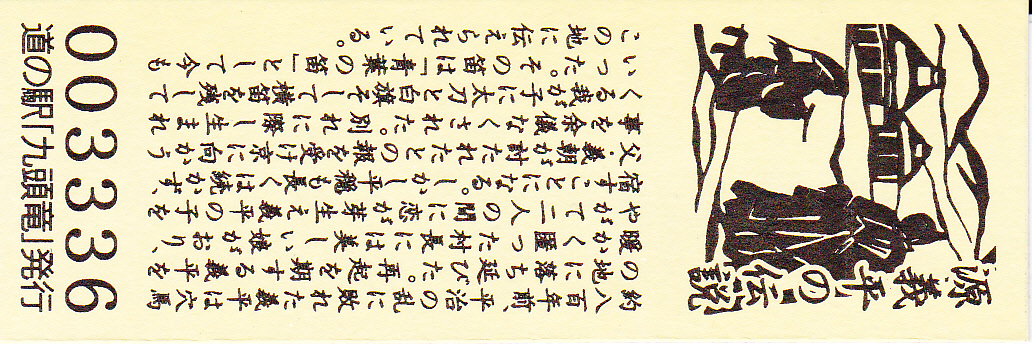 源義平の伝説
約八百年前、平治の乱に敗れた義平は穴馬
の地に落ち延びた。再起を期する義平を
暖かく匿った村長には美しい娘がおり、
やがて二人の間に恋が芽生え義平の子を
宿すことになる。しかし平穏も長くは続かず、
父・義朝が討たれたとの報を受け京に向かう
事を余儀なくされた。別れに際し生まれ
くる我が子に太刀と白旗そして横笛を残して
いった。その笛は「青葉の笛」として今も
この地に伝えられている。
003336
道の駅「九頭竜」発行